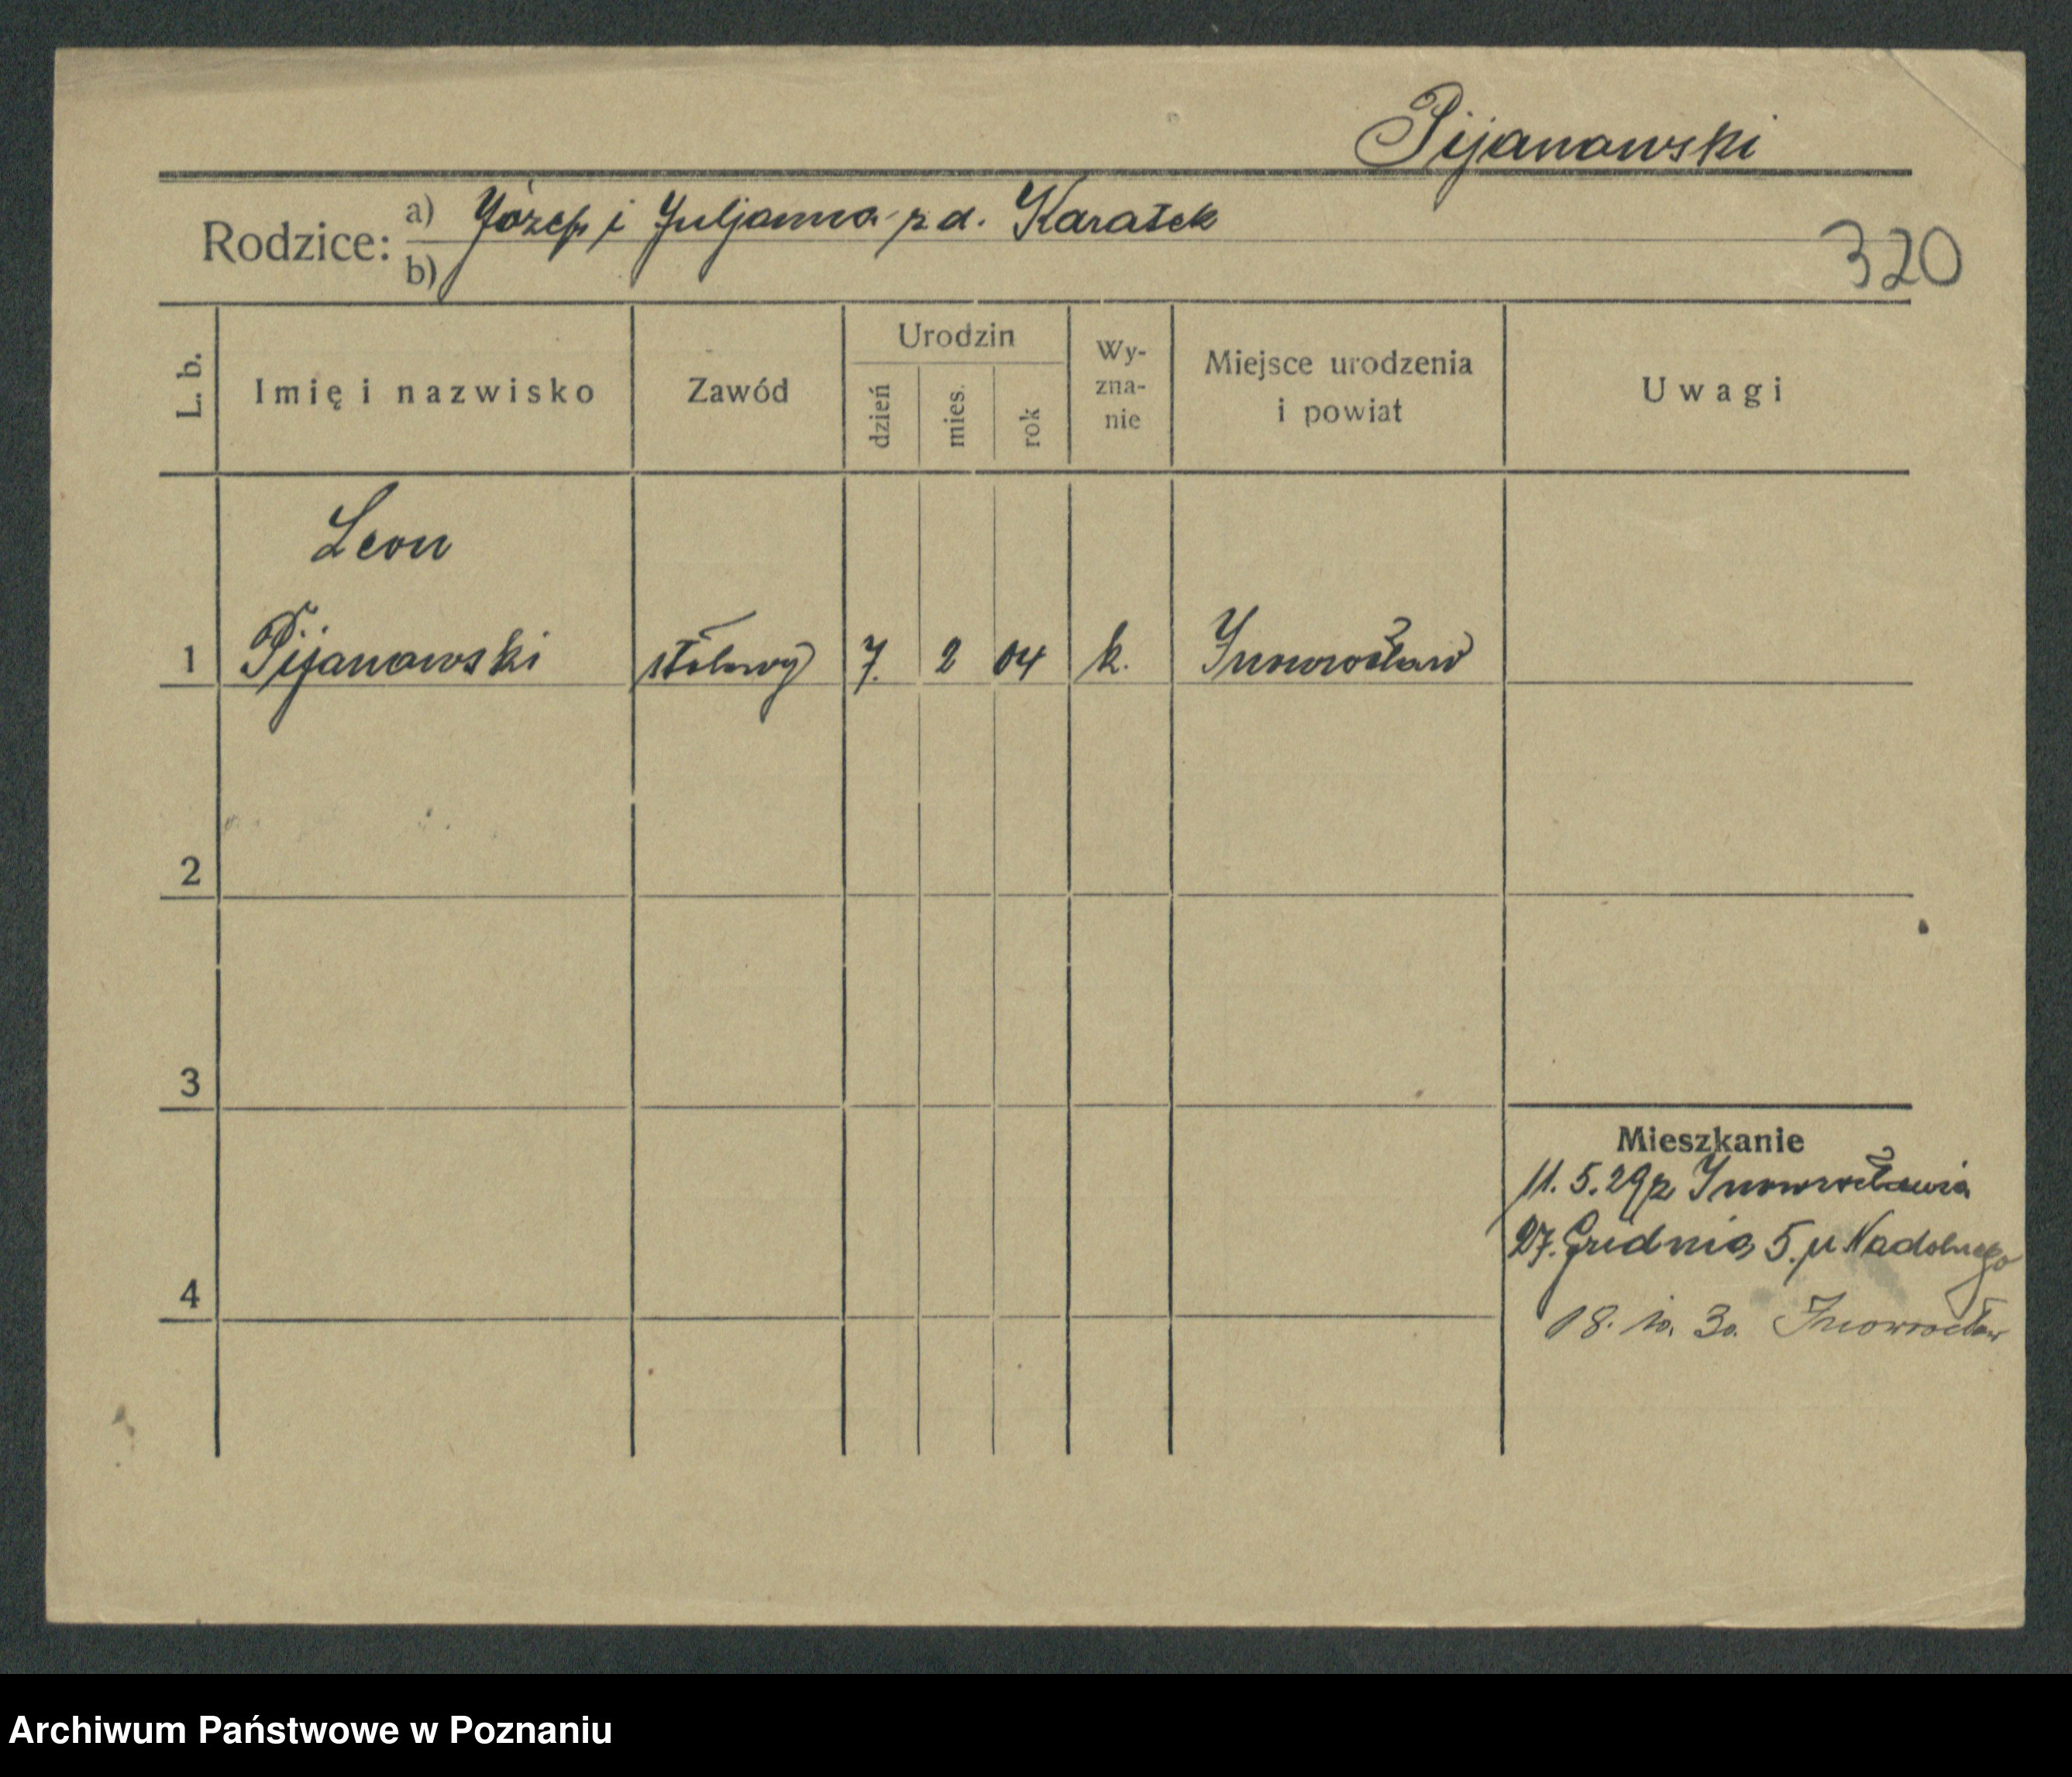 Pijanowski
Rodzice: a) Józef i Juljanna z d. Karatek
b)
320
L. b.
Imię i nazwisko
Zawód
Urodzin
dzień
mies.
rok
Wy-
zna-
nie
Miejsce urodzenia
i powiat
Uwagi
Leon
1 Pijanowski stołowy 7. 2 04 k. Inowrocław
2
3
4
Mieszkanie
11. 5. 29 z Inowrocławia
27. Grudnia 5. u Nadolnego
18. 10. 30. Inowrocław
Archiwum Państwowe w Poznaniu